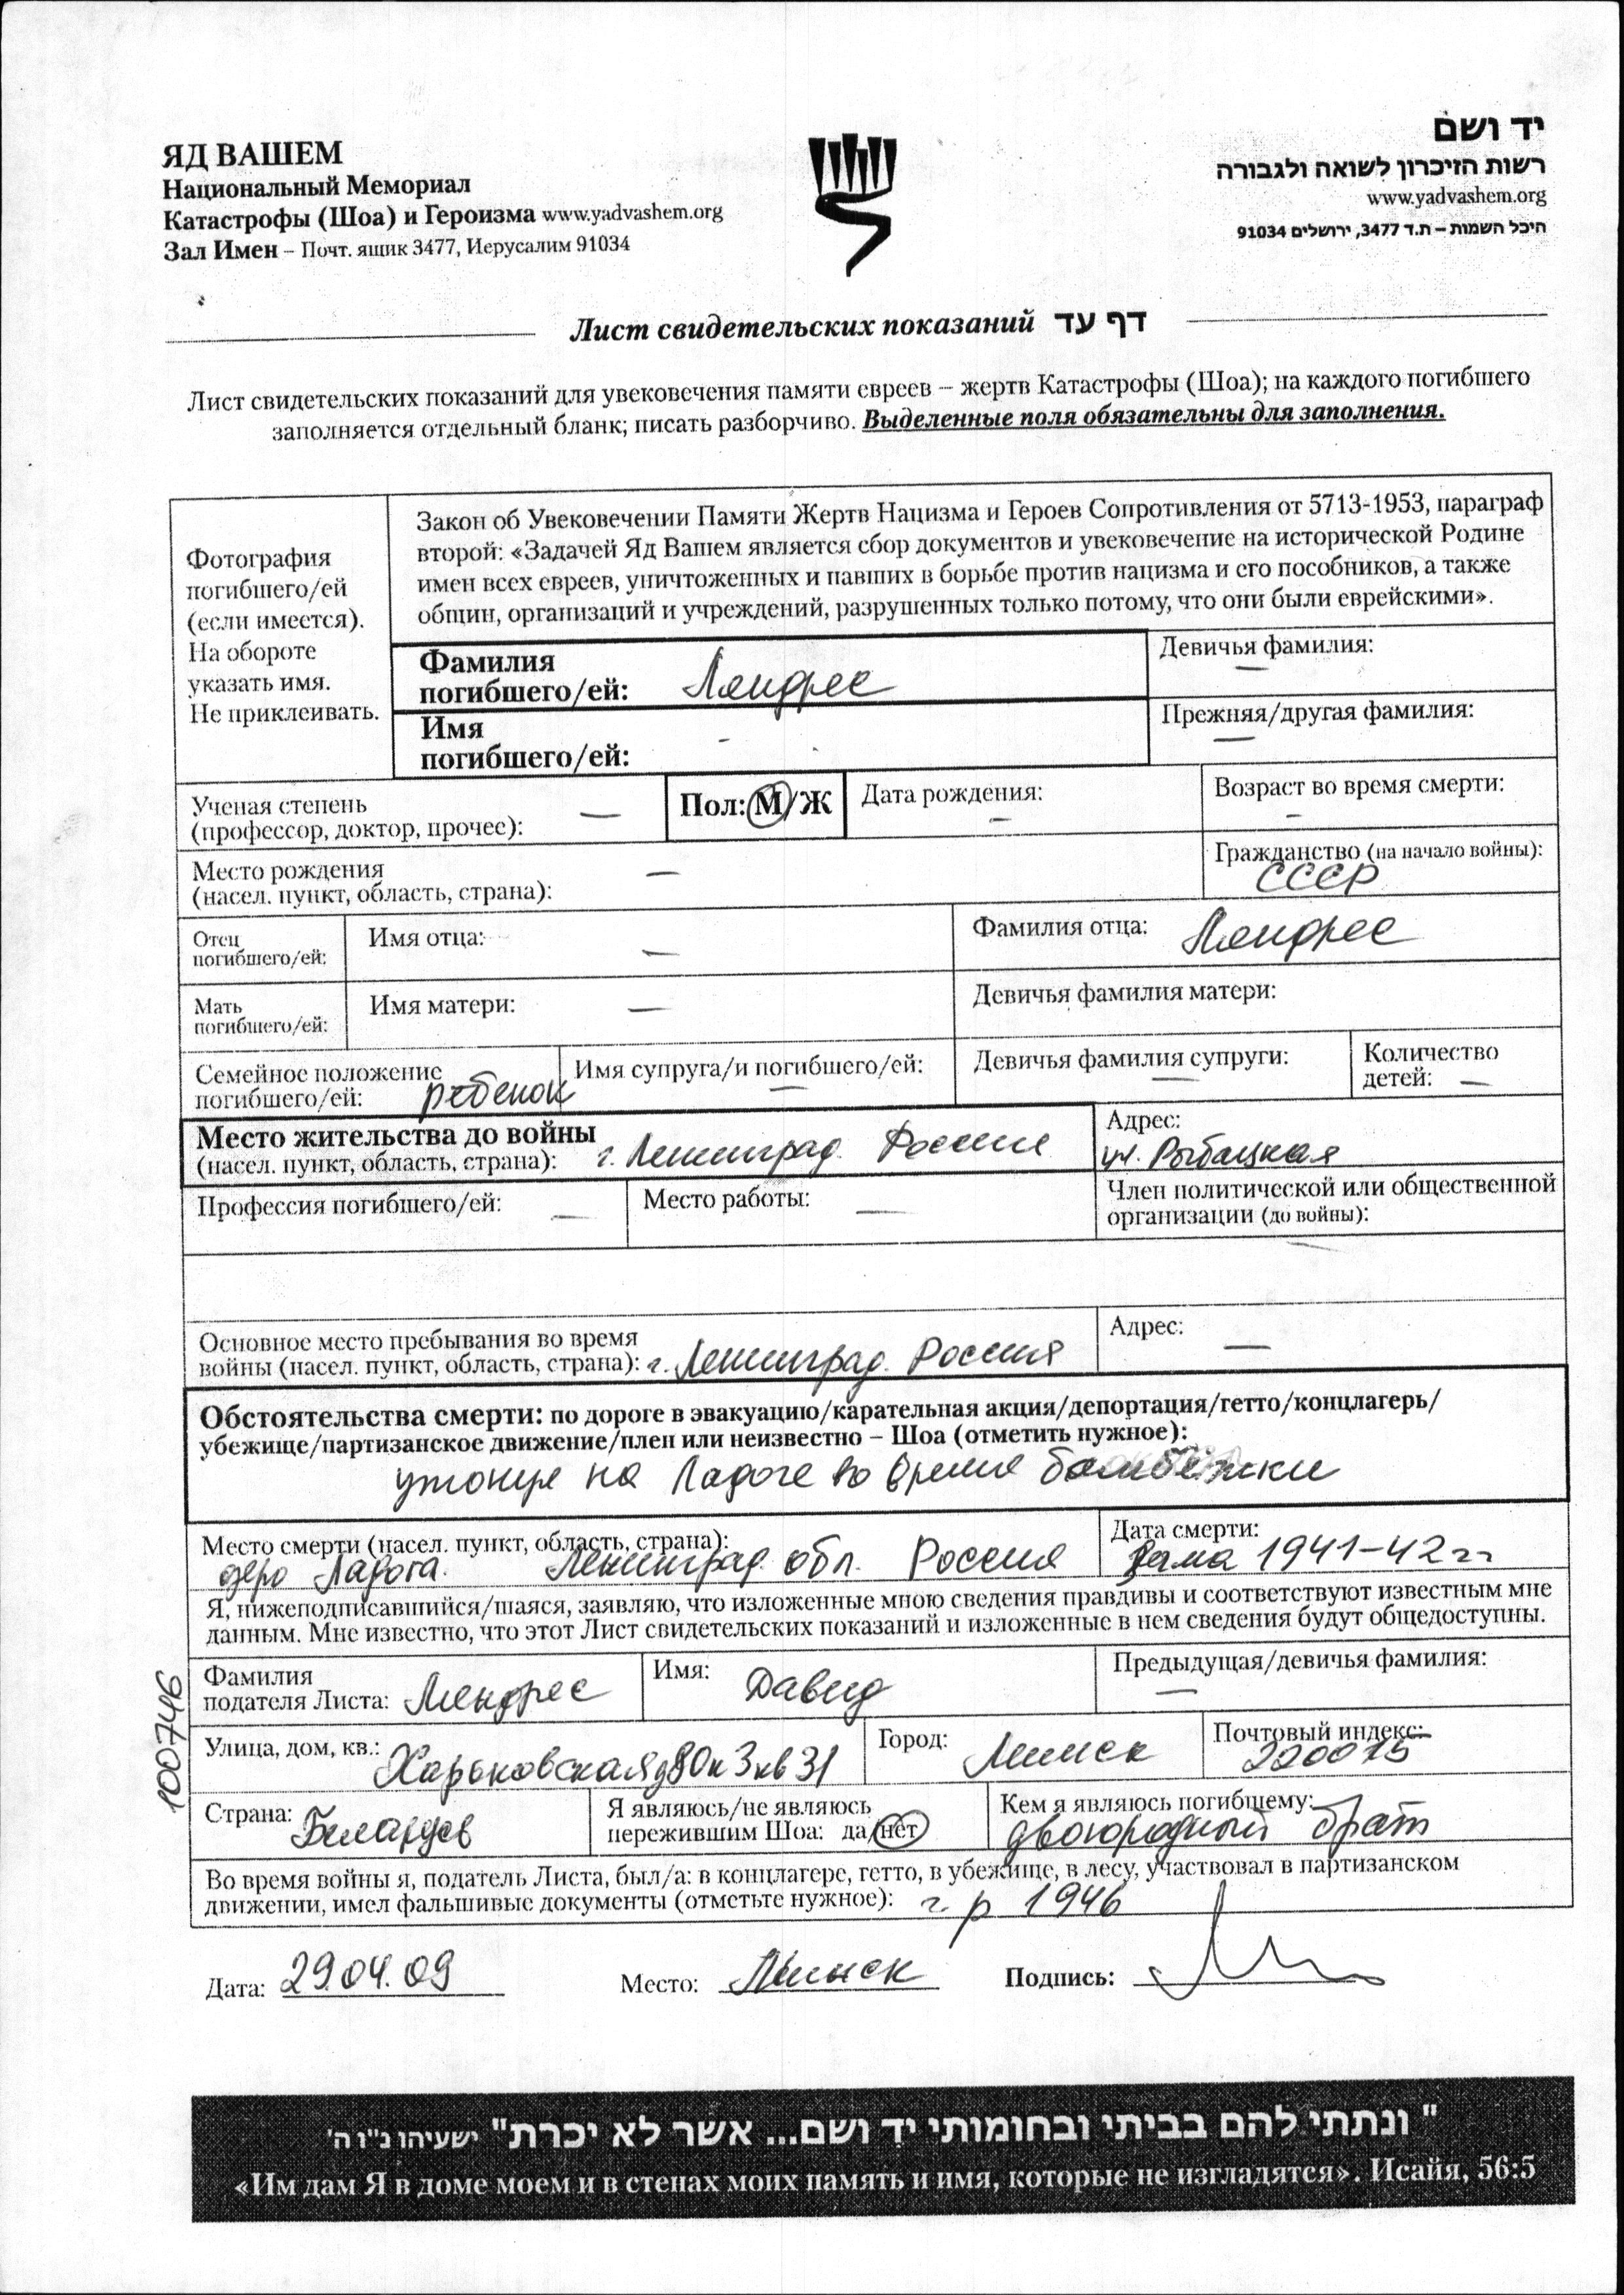 ЯД ВАШЕМ
Национальный Мемориал
Катастрофы (Шоа) и Героизма www.yadvashem.org
Зал Имен – Почт. ящик 3477, Иерусалим 91034
יד ושם
רשות הזיכרון לשואה ולגבורה
www.yadvashem.org
היכל השמות – ת.ד 3477, ירושלים 91034
Лист свидетельских показаний דף עד
Лист свидетельских показаний для увековечения памяти евреев – жертв Катастрофы (Шоа); на каждого погибшего
заполняется отдельный бланк; писать разборчиво. Выделенные поля обязательны для заполнения.
Фотография
погибшего/ей
(если имеется).
На обороте
указать имя.
Не приклеивать.
Закон об Увековечении Памяти Жертв Нацизма и Героев Сопротивления от 5713-1953, параграф
второй: «Задачей Яд Вашем является сбор документов и увековечение на исторической Родине
имен всех евреев, уничтоженных и павших в борьбе против нацизма и его пособников, а также
общин, организаций и учреждений, разрушенных только потому, что они были еврейскими».
Фамилия
погибшего/ей: Лендрес
Девичья фамилия:
—
Имя
погибшего/ей: -
Прежняя/другая фамилия:
—
Ученая степень
(профессор, доктор, прочее): —
Пол: М/Ж
Дата рождения:
—
Возраст во время смерти:
-
Место рождения
(насел. пункт, область, страна): —
Гражданство (на начало войны):
СССР
Отец
погибшего/ей:
Имя отца: —
Фамилия отца: Лендрес
Мать
погибшего/ей:
Имя матери: —
Девичья фамилия матери:
Семейное положение
погибшего/ей: ребенок
Имя супруга/и погибшего/ей:
—
Девичья фамилия супруги:
—
Количество
детей: —
Место жительства до войны
(насел. пункт, область, страна): г. Ленинград. Россия
Адрес:
ул. Рыбацкая
Профессия погибшего/ей: —
Место работы: —
Член политической или общественной
организации (до войны):
—
Основное место пребывания во время
войны (насел. пункт, область, страна): г. Ленинград. Россия
Адрес:
—
Обстоятельства смерти: по дороге в эвакуацию/карательная акция/депортация/гетто/концлагерь/
убежище/партизанское движение/плен или неизвестно – Шоа (отметить нужное):
утонул на Ладоге во время бомбежки
Место смерти (насел. пункт, область, страна):
озеро Ладога. Ленинград. обл. Россия
Дата смерти:
Зима 1941-42 гг
Я, нижеподписавшийся/шаяся, заявляю, что изложенные мною сведения правдивы и соответствуют известным мне
данным. Мне известно, что этот Лист свидетельских показаний и изложенные в нем сведения будут общедоступны.
Фамилия
подателя Листа: Лендрес
Имя: Давид
Предыдущая/девичья фамилия:
—
Улица, дом, кв.: Харьковская д80к3кв31
Город: Минск
Почтовый индекс:
220015
Страна: Беларусь
Я являюсь/не являюсь
пережившим Шоа: да/нет
Кем я являюсь погибшему:
двоюродный брат
Во время войны я, податель Листа, был/а: в концлагере, гетто, в убежище, в лесу, участвовал в партизанском
движении, имел фальшивые документы (отметьте нужное): г. р 1946
Дата: 29.04.09 Место: Минск Подпись:
100746
" ונתתי להם בביתי ובחומותי יד ושם... אשר לא יכרת" ישעיהו נ"ו ה'
«Им дам Я в доме моем и в стенах моих память и имя, которые не изгладятся». Исайя, 56:5